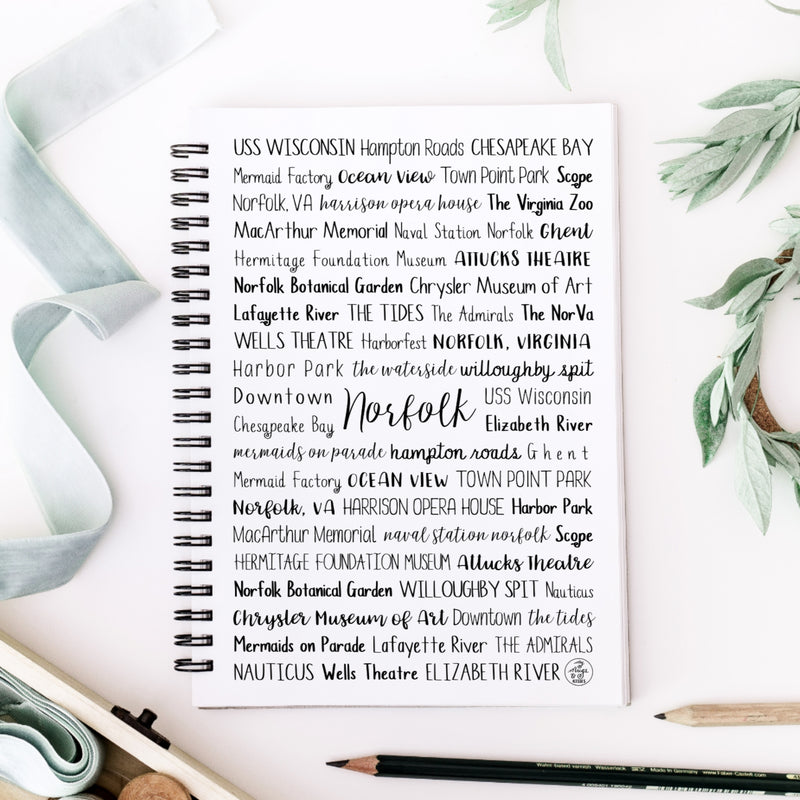 USS WISCONSIN Hampton Roads CHESAPEAKE BAY
Mermaid Factory Ocean View Town Point Park Scope
Norfolk, VA harrison opera house The Virginia Zoo
MacArthur Memorial Naval Station Norfolk Ghent
Hermitage Foundation Museum ATTUCKS THEATRE
Norfolk Botanical Garden Chrysler Museum of Art
Lafayette River THE TIDES The Admirals The NorVa
WELLS THEATRE Harborfest NORFOLK, VIRGINIA
Harbor Park the waterside willoughby spit
Downtown Norfolk USS Wisconsin
Chesapeake Bay Elizabeth River
mermaids on parade hampton roads Ghent
Mermaid Factory OCEAN VIEW TOWN POINT PARK
Norfolk, VA HARRISON OPERA HOUSE Harbor Park
MacArthur Memorial naval station norfolk Scope
HERMITAGE FOUNDATION MUSEUM Attucks Theatre
Norfolk Botanical Garden WILLOUGHBY SPIT Nauticus
Chrysler Museum of Art Downtown the tides
Mermaids on Parade Lafayette River THE ADMIRALS
NAUTICUS Wells Theatre ELIZABETH RIVER
Made in Germany www.Faber-Castell.com